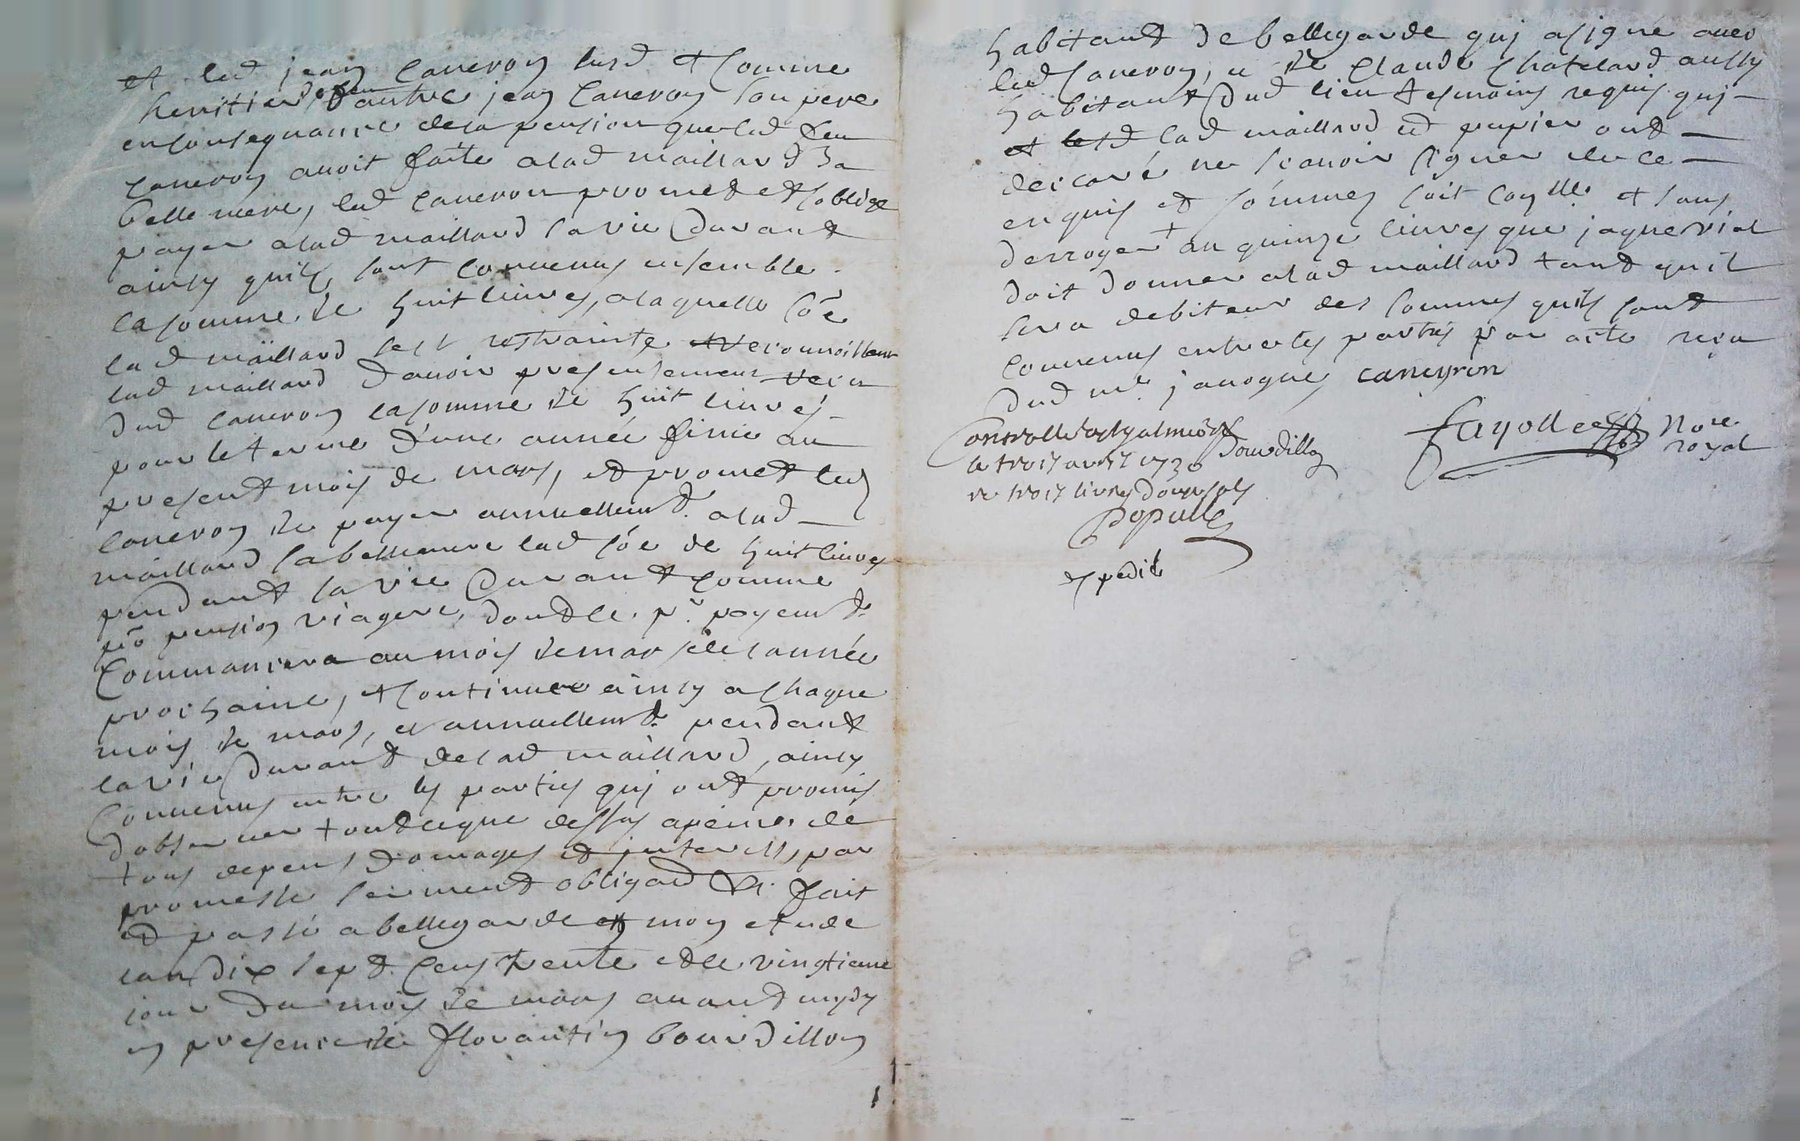 et led jean Caneron susd. et comme
heritier de feu autre jean Caneron son pere
en consequance de la pension que led feu
Caneron avoit faite a lad maillard sa
belle mere, led Caneron promet et soblige
payer a lad maillard sa vie durant
ainsy quils sont convenus ensemble
la somme de huit livres, a laquelle soe
lad maillard sest restrainte
lad maillard davoir presentement receu
dud Caneron la somme de huit livres
pour le terme dune année finie au
present mois de mars, et promet led
Caneron de payer annuellemt. a lad
maillard sa belle mere lad soe de huit livres
pendant sa vie durant comme
pension viagere, dont le pr. payemt.
Commancera au mois de mars de lannée
prochaine, et continuer ainsy a chaque
mois de mars, et annuellemt. pendant
la vie durant de lad maillard, ainsy
Convenus entre les parties qui ont promis
dobserver tout ce que dessus a peine de
tous depens domages et interests, par
promesse serment obligaon &. fait
et passé a bellegarde en mon etude
lan dix sept cens trente et le vingtieme
jour du mois de mars avant mydy
en presence de florantin bourdillon
habitant de bellegarde qui a signé avec
led Caneron, et de Claude Chatelard aussy
habitant dud lieu tesmoins requis qui
et lad maillard et papier ont
declaré ne scavoir signer de ce
enquis et sommés soit coyllé. et sans
derroger au quinze livres que jaque vial
doit donner a lad maillard tant quil
sera debiteur des sommes quils sont
convenus entre les parties par acte reçu
dud me. janoques caneyron
Controllé a st galmier Bourdillon
le trois avril 1730
re trois livres douze sols
Fayolle Nore.
royal
Popule
Expedié